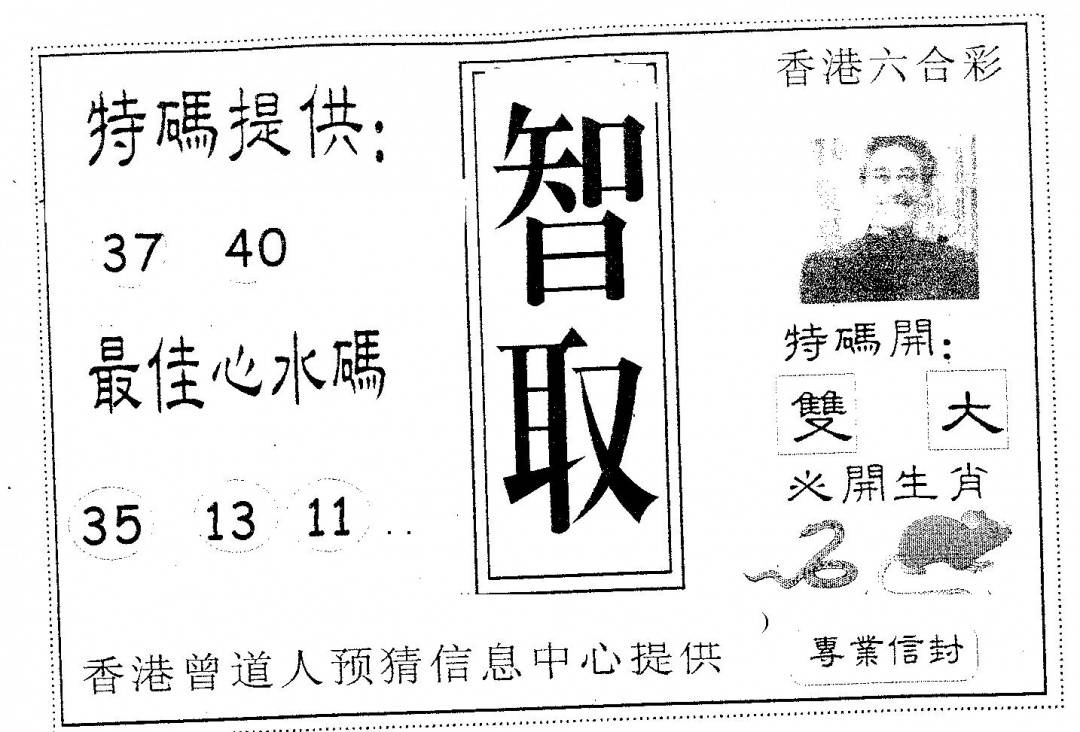 香港六合彩
特碼提供：
37 40
最佳心水碼
35 13 11 ..
智取
特碼開：
雙 大
必開生肖
專業信封
香港曾道人预猜信息中心提供